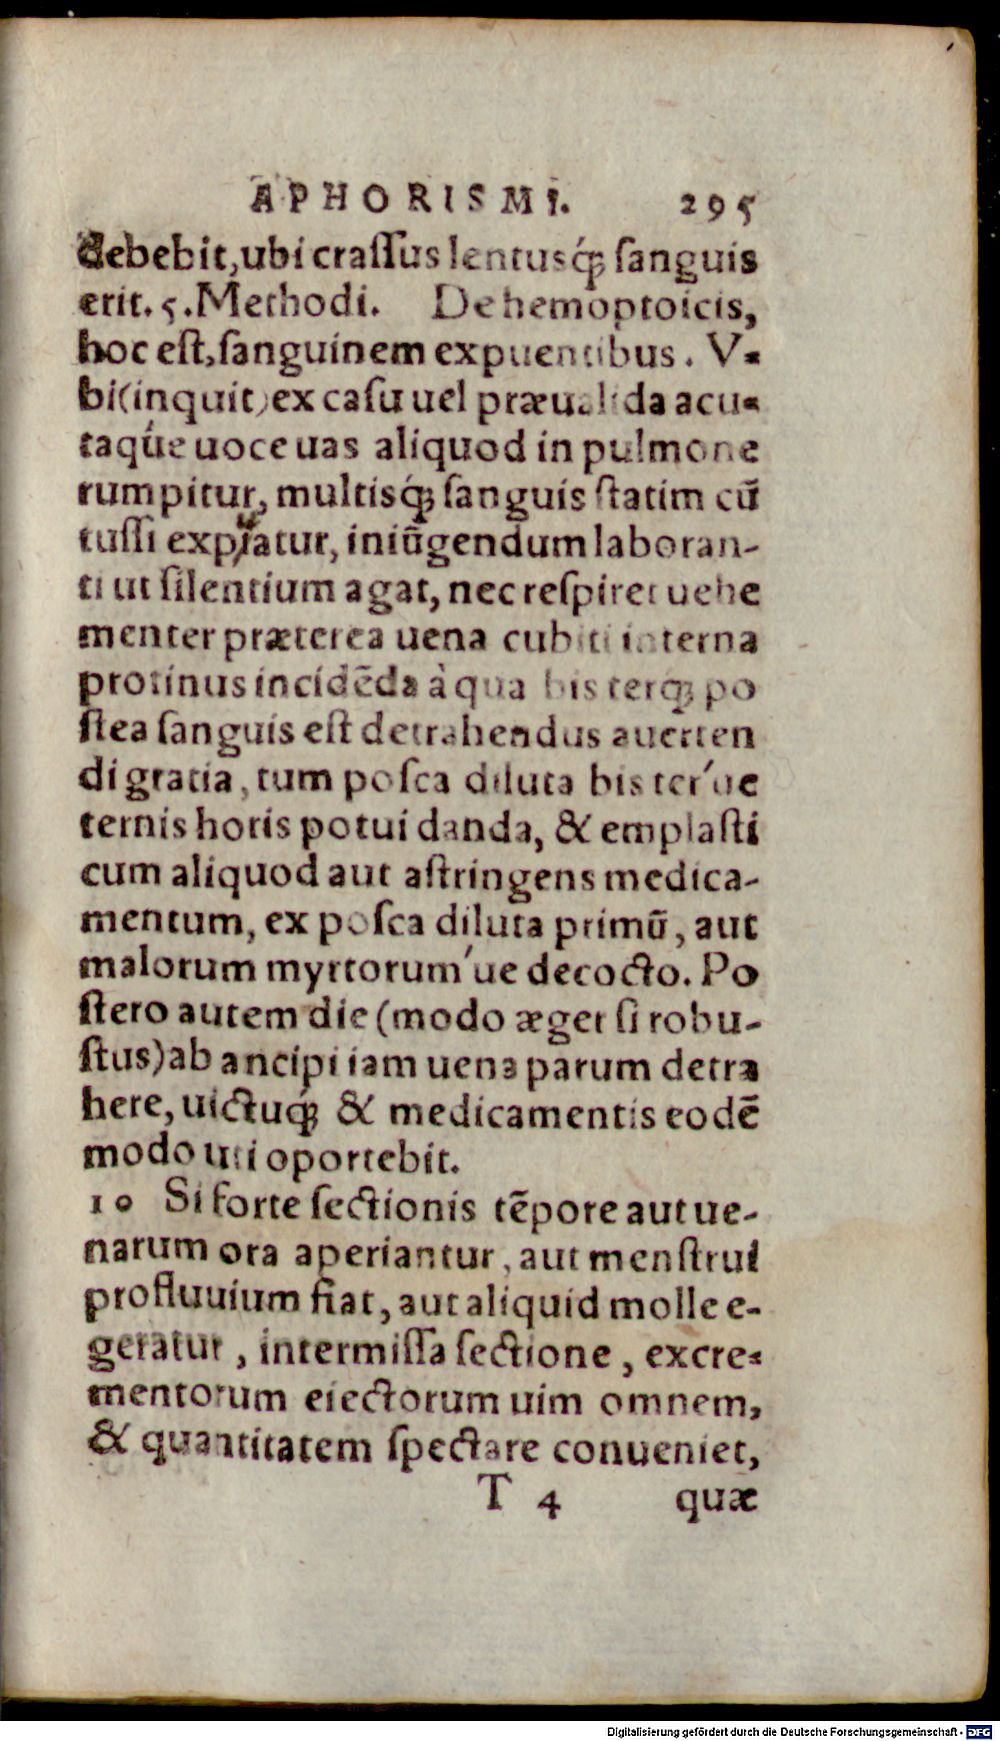 APHORISMI. 295
debebit, ubi craſſus lentusq́ꝫ ſanguis
erit. 5. Methodi. De hemoptoicis,
hoc eſt, ſanguinem expuentibus. V-
bi (inquit) ex caſu uel præualida acu-
taq́ue uoce uas aliquod in pulmone
rumpitur, multisq́ꝫ ſanguis ſtatim cū
tuſſi expuatur, iniūgendum laboran-
ti ut ſilentium agat, nec reſpiret uehe
menter præterea uena cubiti interna
protinus incidēda à qua bis terqꝫ po
ſtea ſanguis eſt detrahendus auerten
di gratia, tum poſca diluta bis ter'ue
ternis horis potui danda, & emplaſti
cum aliquod aut aſtringens medica-
mentum, ex poſca diluta primū, aut
malorum myrtorum'ue decocto. Po
ſtero autem die (modo æger ſi robu-
ſtus) ab ancipi iam uena parum detra
here, uictuq́ꝫ & medicamentis eodē
modo uti oportebit.
10 Si forte ſectionis tēpore aut ue-
narum ora aperiantur, aut menſtrui
profluuium fiat, aut aliquid molle e-
geratur, intermiſſa ſectione, excre-
mentorum eiectorum uim omnem,
& quantitatem ſpectare conueniet,
T 4 quæ
Digitalisierung gefördert durch die Deutsche Forschungsgemeinschaft - DFG